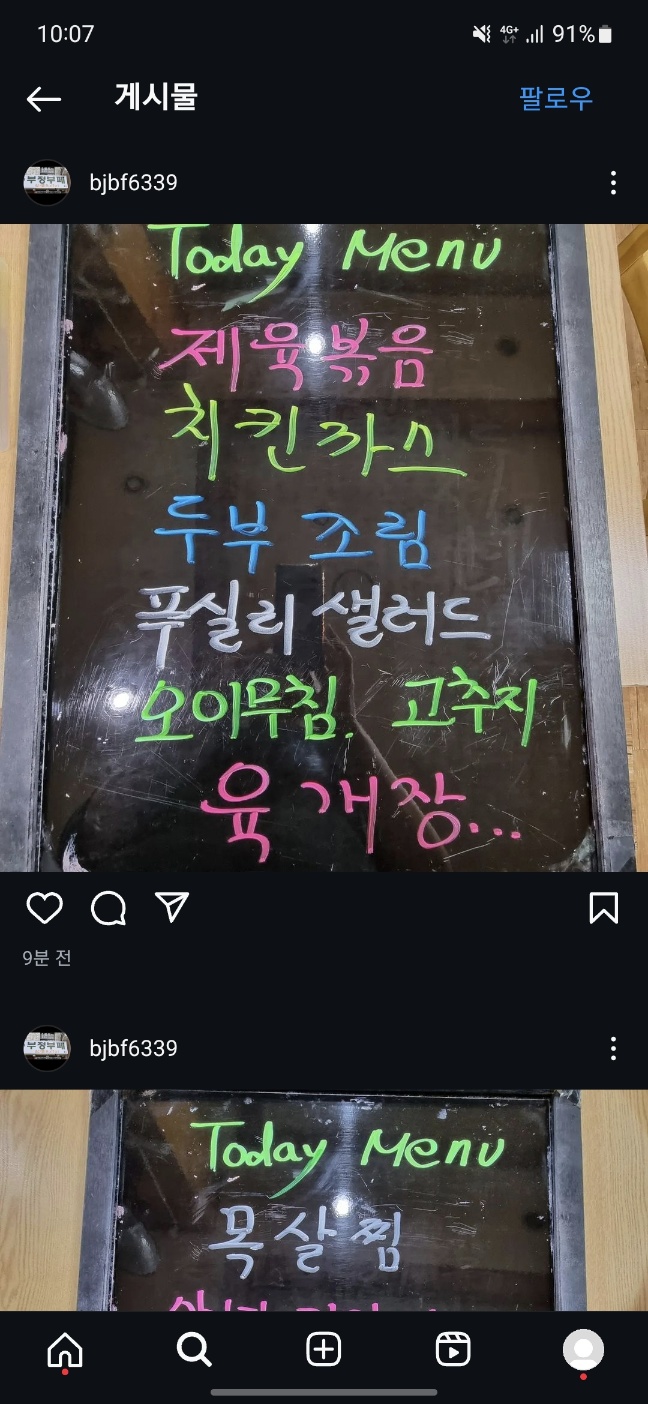 10:07 4G+ 91%
게시물 팔로우
bjbf6339
Today Menu
제육볶음
치킨까스
두부 조림
푸실리 샐러드
오이무침. 고추지
육개장...
9분 전
부정부패
bjbf6339
Today Menu
목살찜